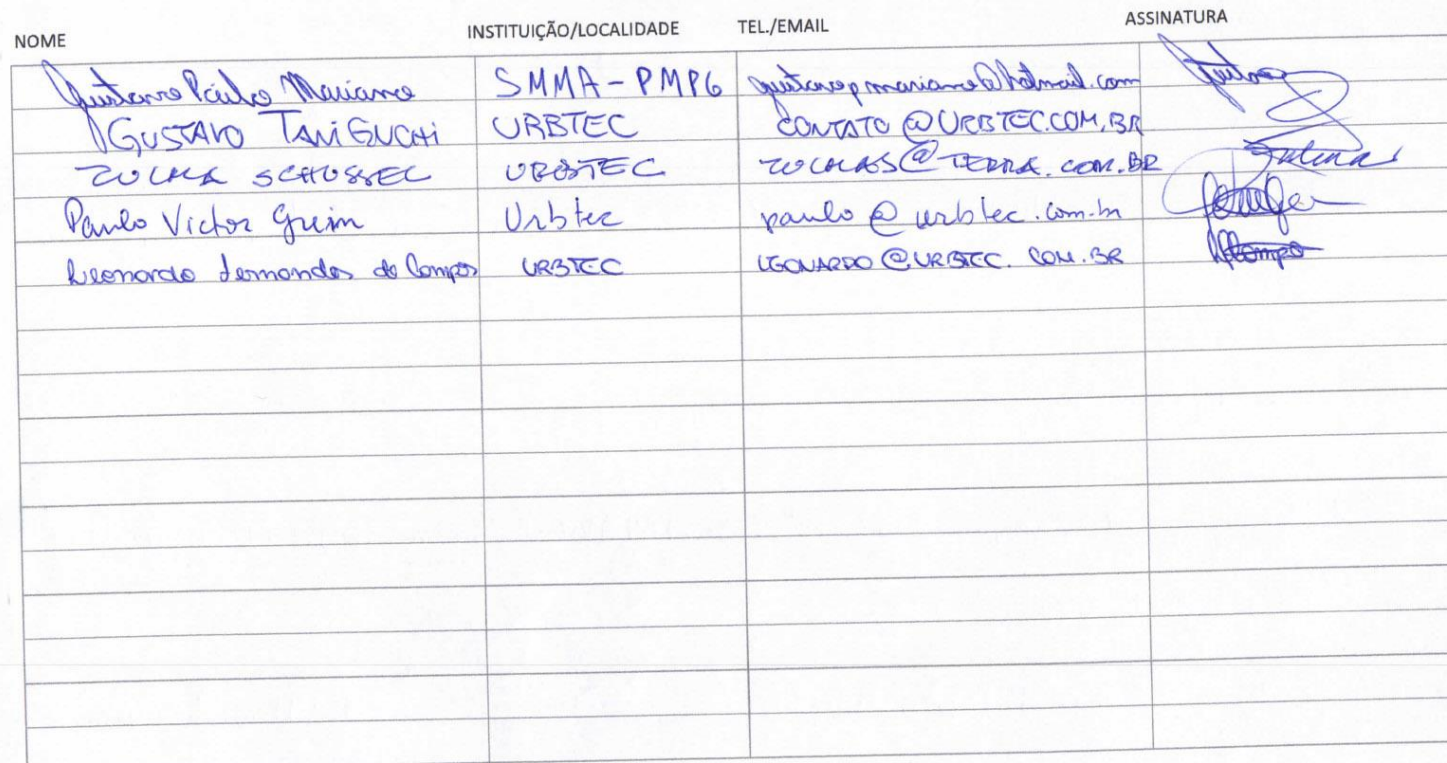 NOME INSTITUIÇÃO/LOCALIDADE TEL./EMAIL ASSINATURA
Gustavo Paulo Mariano SMMA-PMPG gustavopmariano@hotmail.com Gustavo
GUSTAVO TANIGUCHI URBTEC CONTATO@URBTEC.COM.BR
ZULMA SCHUSSEL URBTEC ZULMAS@TERRA.COM.BR Zulma
Paulo Victor Greim Urbtec paulo@urbtec.com.br
Leonardo Fernandes de Campos URBTEC LEONARDO@URBTEC.COM.BR